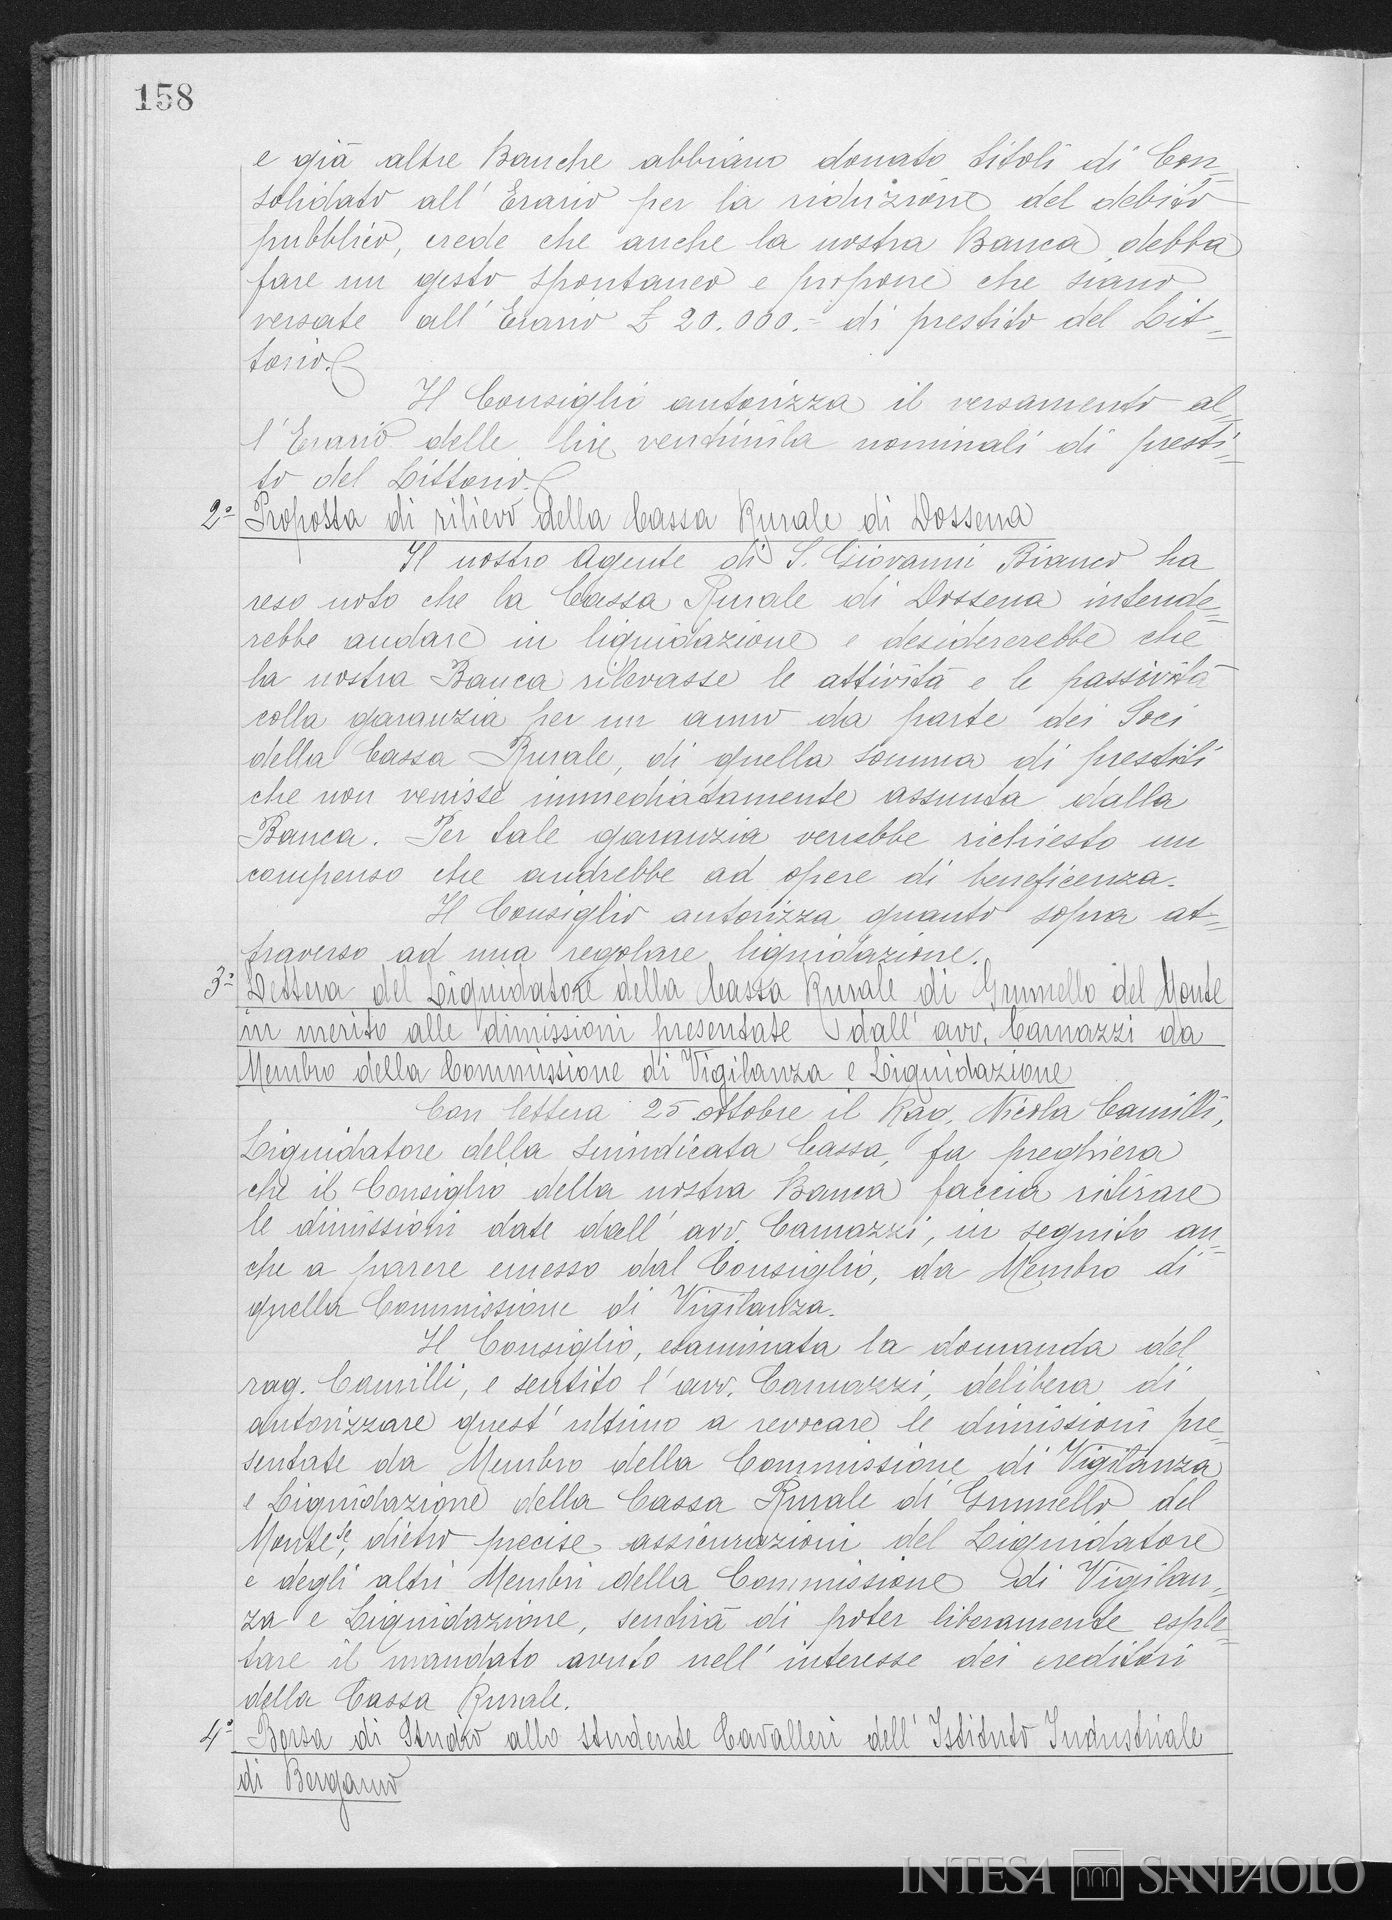 158
e già altre Banche abbiano donato titoli di Con=
solidato all'Erario per la riduzione del debito
pubblico, crede che anche la nostra Banca debba
fare un gesto spontaneo e propone che siano
versate all'Erario £ 20.000.= di prestito del Lit=
torio.
Il Consiglio autorizza il versamento al=
l'Erario delle lire ventimila nominali di presti=
to del Littorio.
2° Proposta di rilievo della Cassa Rurale di Dossena
Il nostro Agente di S. Giovanni Bianco ha
reso noto che la Cassa Rurale di Dossena intende=
rebbe andare in liquidazione e desidererebbe che
la nostra Banca rilevasse le attività e le passività
colla garanzia per un anno da parte dei Soci
della Cassa Rurale, di quella somma di prestiti
che non venisse immediatamente assunta dalla
Banca. Per tale garanzia verrebbe richiesto un
compenso che andrebbe ad opere di beneficenza.
Il Consiglio autorizza quanto sopra at=
traverso ad una regolare liquidazione.
3° Lettera del Liquidatore della Cassa Rurale di Grumello del Monte
in merito alle dimissioni presentate dall'avv. Camazzi da
Membro della Commissione di Vigilanza e Liquidazione
Con lettera 25 ottobre il Rag. Nicola Camilli,
Liquidatore della suindicata Cassa, fa preghiera
che il Consiglio della nostra Banca faccia ritirare
le dimissioni date dall'avv. Camazzi, in seguito an=
che a parere emesso dal Consiglio, da Membro di
quella Commissione di Vigilanza.
Il Consiglio, esaminata la domanda del
rag. Camilli, e sentito l'avv. Camazzi, delibera di
autorizzare quest'ultimo a revocare le dimissioni pre=
sentate da Membro della Commissione di Vigilanza
e Liquidazione della Cassa Rurale di Grumello del
Monte se, dietro precise assicurazioni del Liquidatore
e degli altri Membri della Commissione di Vigilan=
za e Liquidazione, sentirà di poter liberamente esple=
tare il mandato avuto nell'interesse dei creditori
della Cassa Rurale.
4° Borsa di Studio allo studente Cavalleri dell'Istituto Industriale
di Bergamo
INTESA SANPAOLO